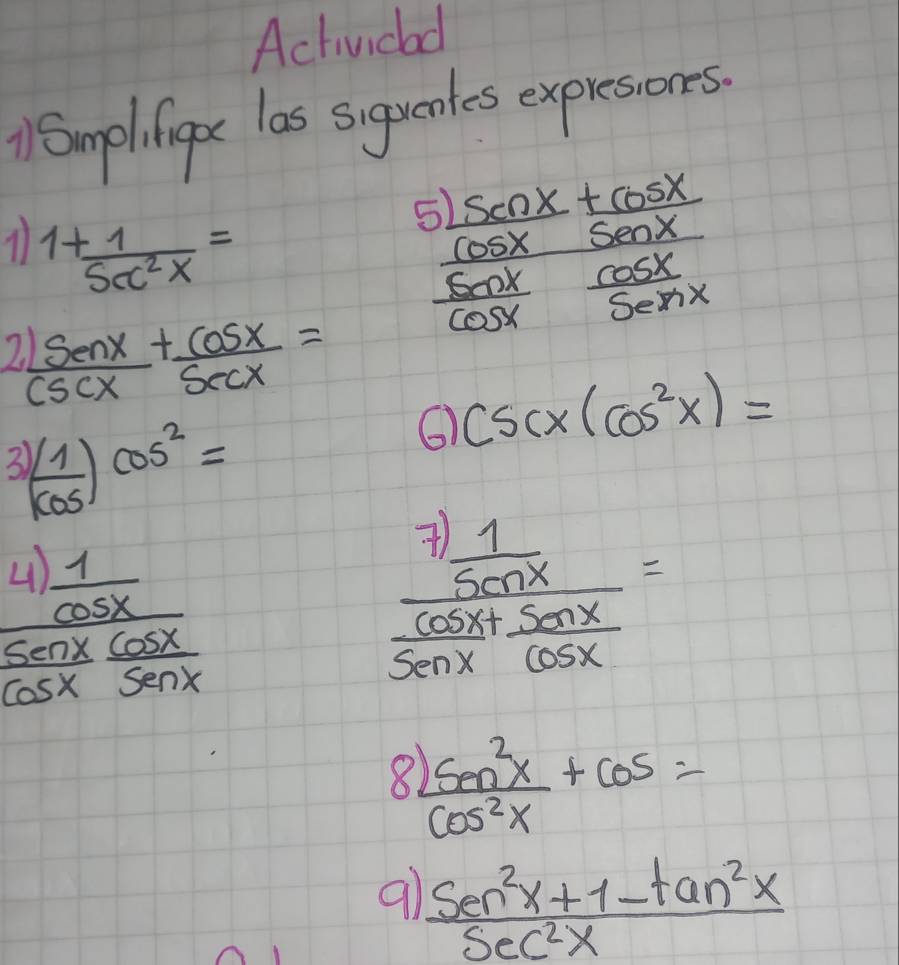 Actividad
1) Simplifique las siguientes expresiones.
1) 1 + 1/Sec²x =
2) Senx/cscx + cosx/Secx =
3) (1/cos) cos² =
4) (1/cosx) / (Senx/cosx cosx/Senx)
5) (Senx/cosx + cosx/Senx) / (Senx/cosx cosx/Senx)
6) cscx(cos²x) =
7) (1/Senx) / (cosx/Senx + Senx/cosx) =
8) Sen²x/cos²x + cos =
9) (Sen²x + 1 - tan²x)/Sec²x